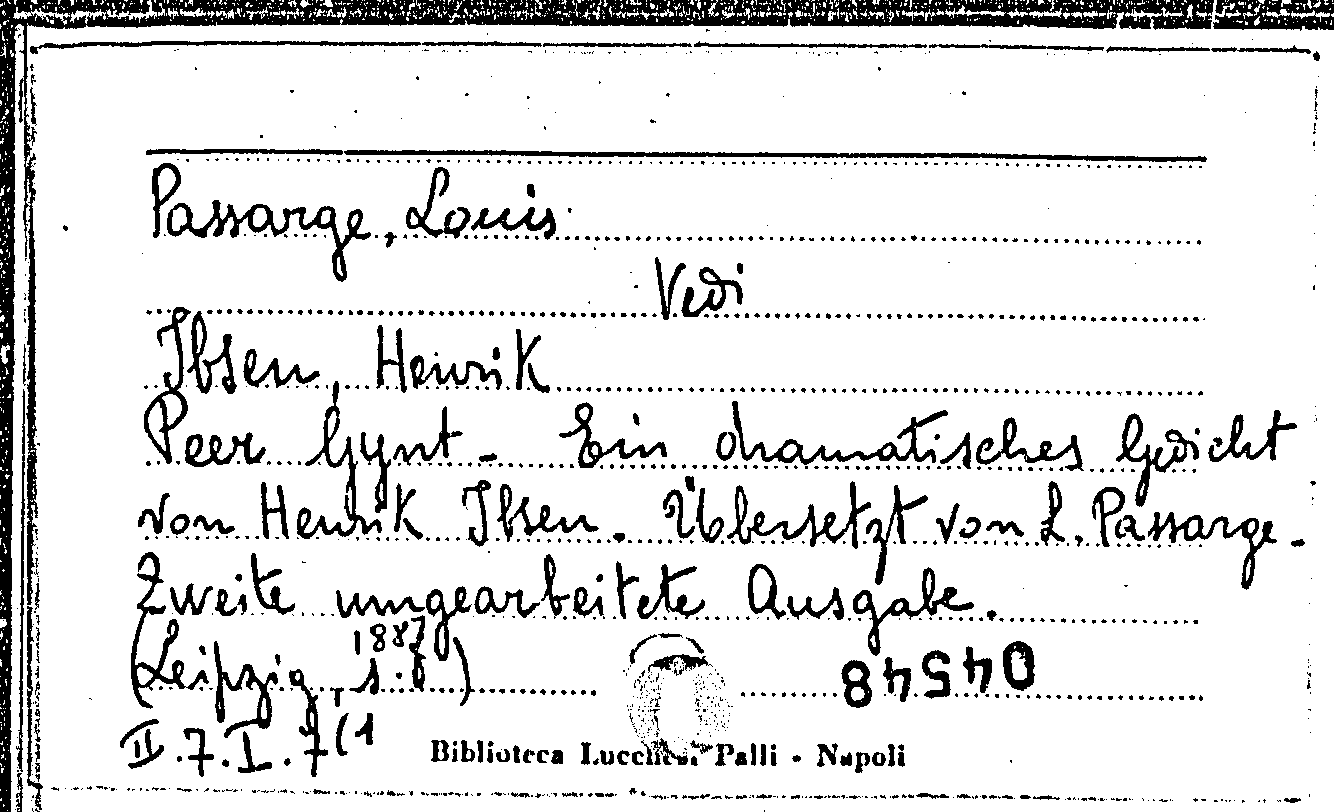 Passarge, Louis
Vedi
Ibsen, Henrik
Peer Gynt - Ein dramatisches Gedicht
von Henrik Ibsen. Übersetzt von L. Passarge -
Zweite umgearbeitete Ausgabe.
1887
(Leipzig, s.d)
04548
II.7.I.7(1
Biblioteca Lucchesi Palli - Napoli